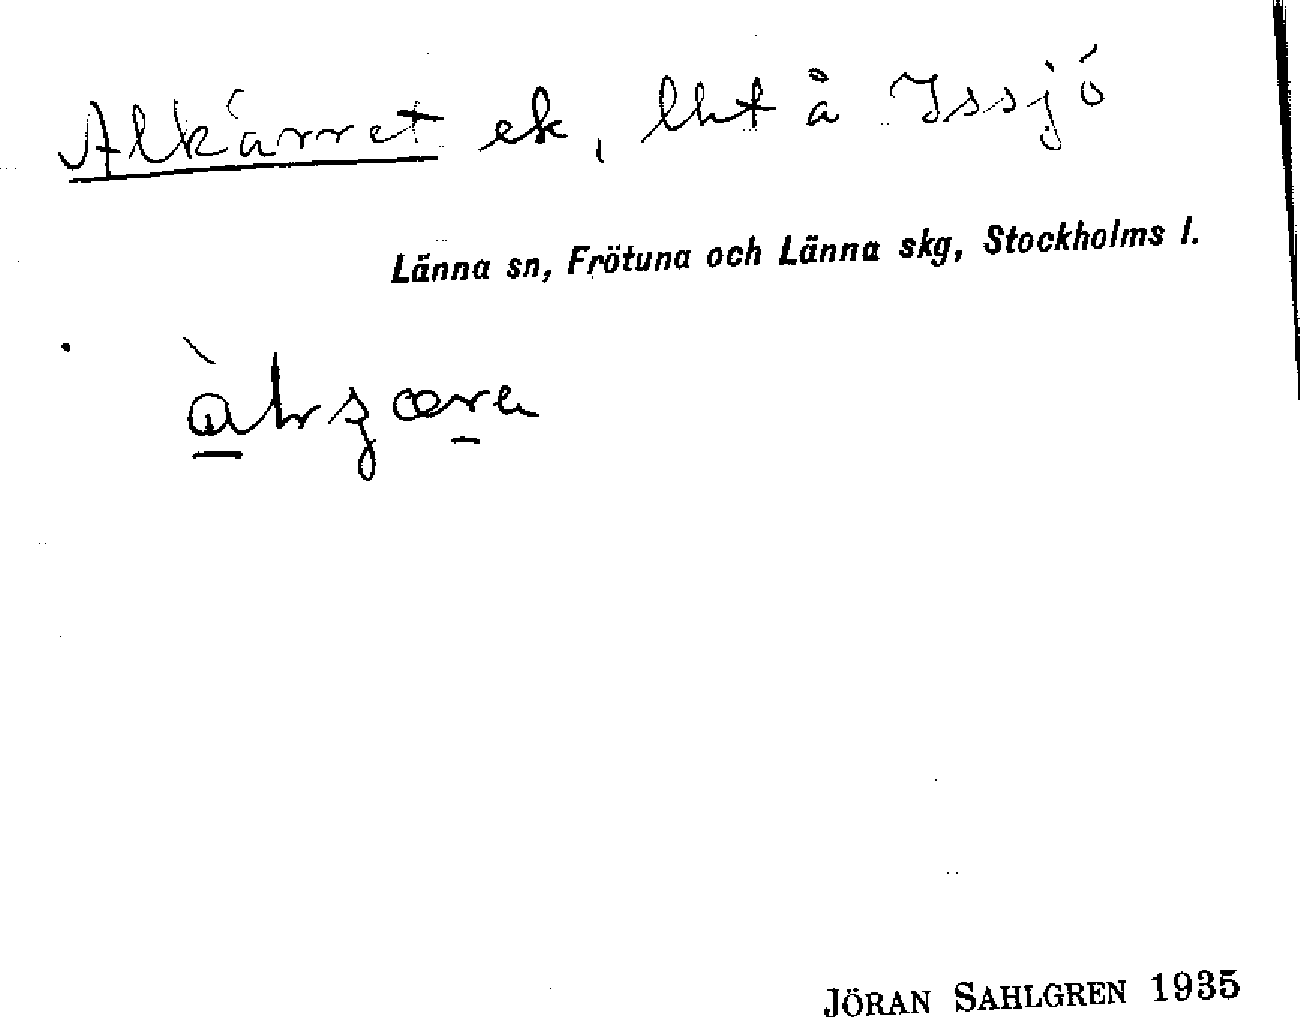 Alkärret ek, lht å Issjö
Länna sn, Frötuna och Länna skg, Stockholms l.
JÖRAN SAHLGREN 1935